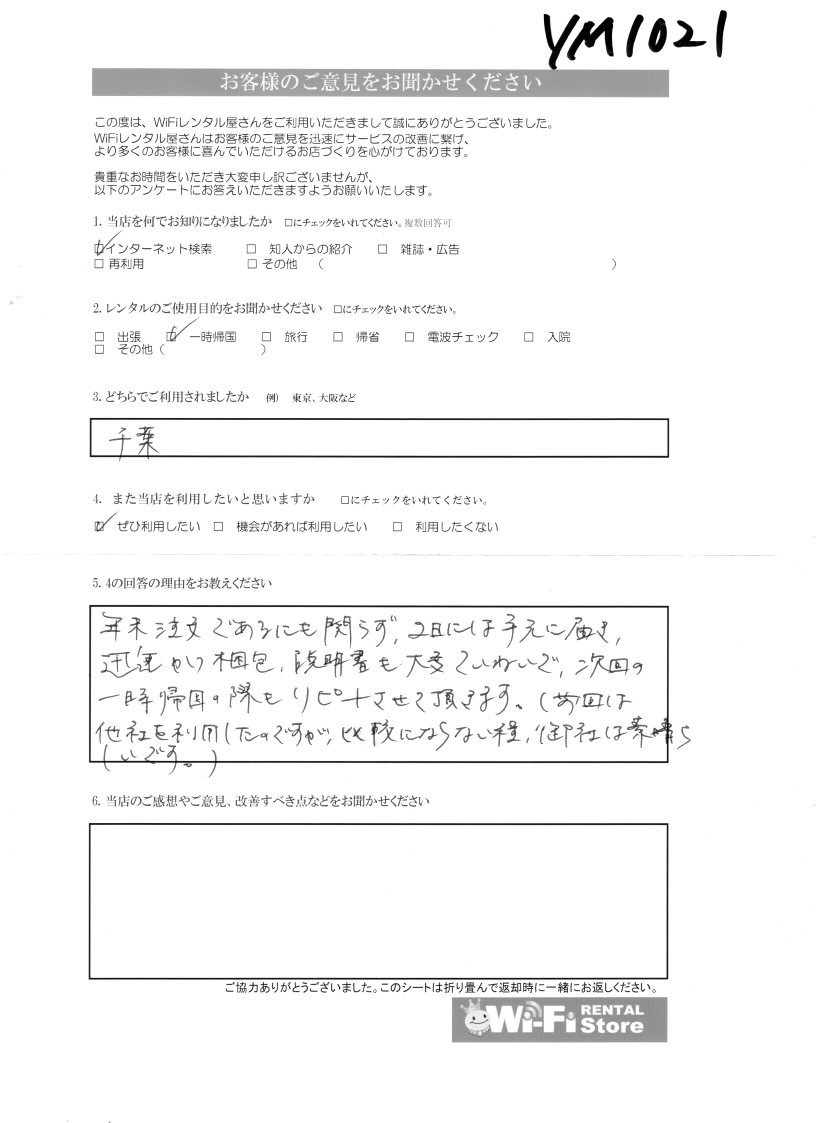 YM1021
お客様のご意見をお聞かせください
この度は、WiFiレンタル屋さんをご利用いただきまして誠にありがとうございました。
WiFiレンタル屋さんはお客様のご意見を迅速にサービスの改善に繋げ、
より多くのお客様に喜んでいただけるお店づくりを心がけております。
貴重なお時間をいただき大変申し訳ございませんが、
以下のアンケートにお答えいただきますようお願いいたします。
1. 当店を何でお知りになりましたか □にチェックをいれてください。複数回答可
☑インターネット検索 □ 知人からの紹介 □ 雑誌・広告
□ 再利用 □ その他 （ ）
2. レンタルのご使用目的をお聞かせください □にチェックをいれてください。
□ 出張 ☑ 一時帰国 □ 旅行 □ 帰省 □ 電波チェック □ 入院
□ その他（ ）
3. どちらでご利用されましたか 例） 東京、大阪など
千葉
4. また当店を利用したいと思いますか □にチェックをいれてください。
☑ ぜひ利用したい □ 機会があれば利用したい □ 利用したくない
5. 4の回答の理由をお教えください
年末注文であるにも関らず、2日には手元に届き、
迅速かつ梱包、説明書も大変ていねいで、次回の
一時帰国の際もリピートさせて頂きます。（前回は
他社を利用したのですが、比較にならない程、御社は素晴ら
しいです。）
6. 当店のご感想やご意見、改善すべき点などをお聞かせください
ご協力ありがとうございました。このシートは折り畳んで返却時に一緒にお返しください。
Wi-Fi RENTAL Store